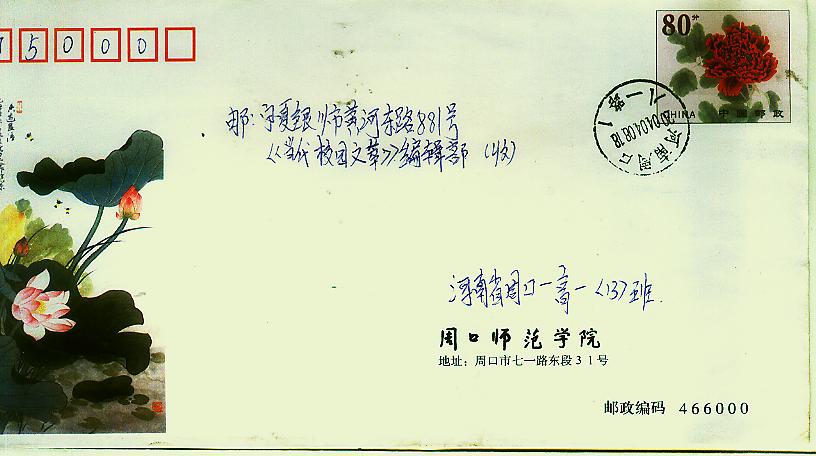 5000
80分
邮:宁夏银川市黄河东路881号
《当代校园文萃》编辑部 (收)
CHINA 中国邮政
2004.04.08.18
河南周口
八一路
河南省周口一高一〈13〉班
周口师范学院
地址：周口市七一路东段31号
邮政编码 466000